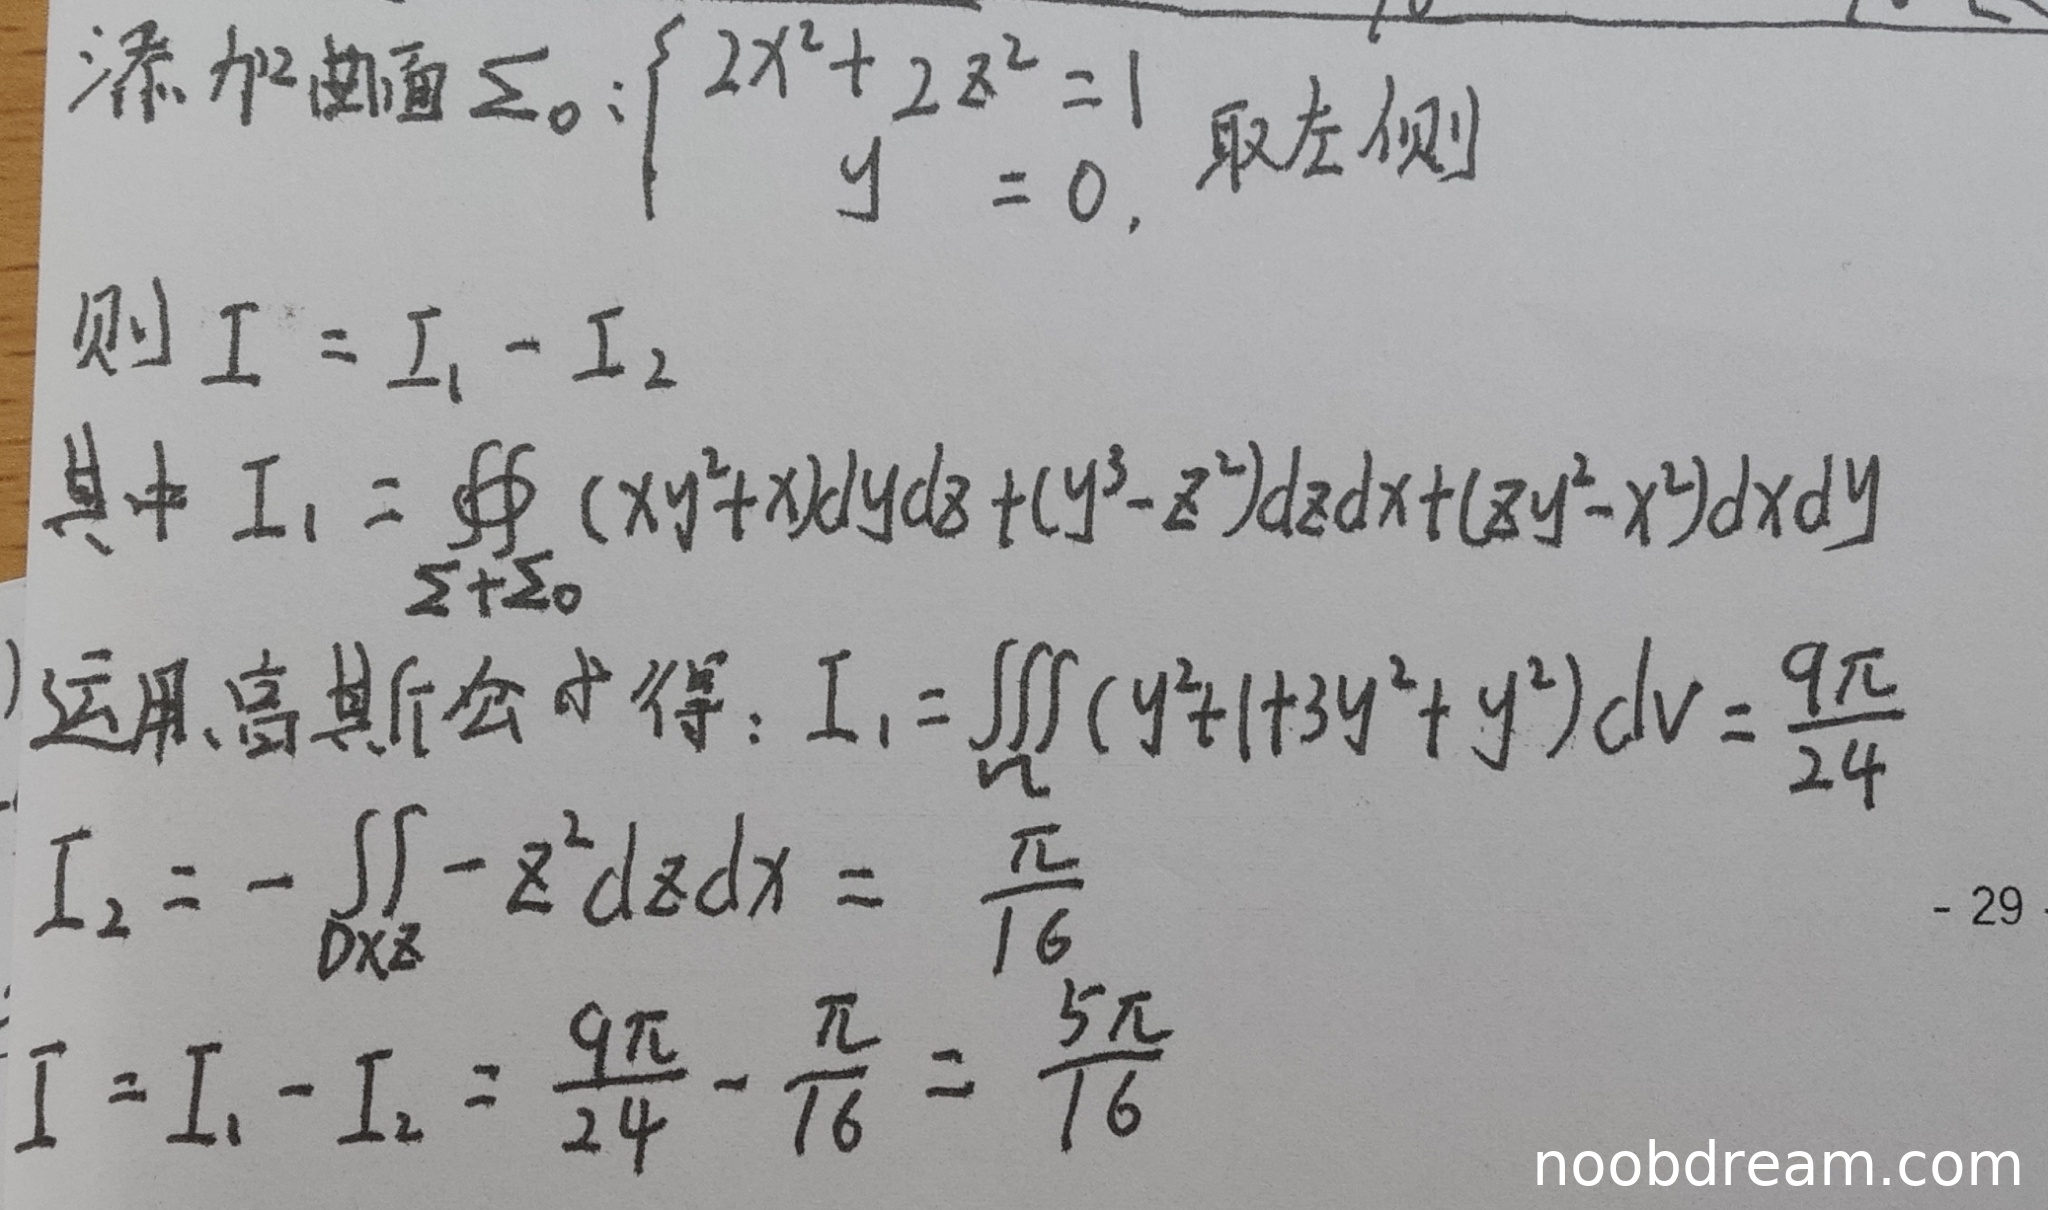 添加曲面 Σ₀: { 2x² + 2z² = 1
y = 0, 取左侧
则 I = I₁ - I₂
其中 I₁ = ∯_{Σ+Σ₀} (xy²+x)dydz + (y³-z²)dzdx + (zy²-x²)dxdy
运用高斯公式得: I₁ = ∭_Ω (y²+1+3y²+y²)dv = 9π/24
I₂ = - ∬_{Dxz} -z²dzdx = π/16
- 29 -
I = I₁ - I₂ = 9π/24 - π/16 = 5π/16
noobdream.com